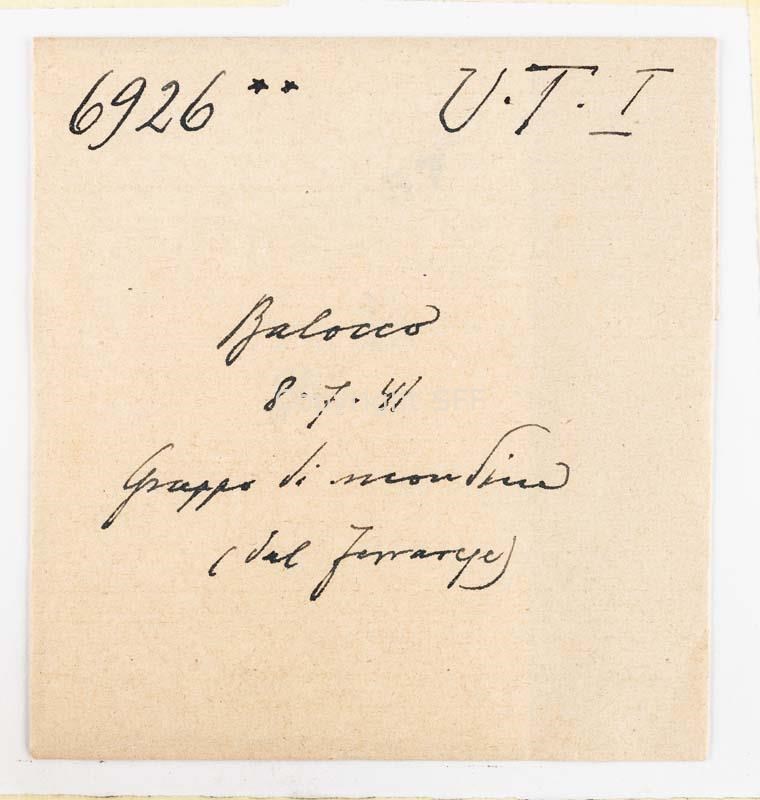 6926 ** U.T. I
Balocco
8.7.41
Gruppo di mondine
(dal Ferrarese)